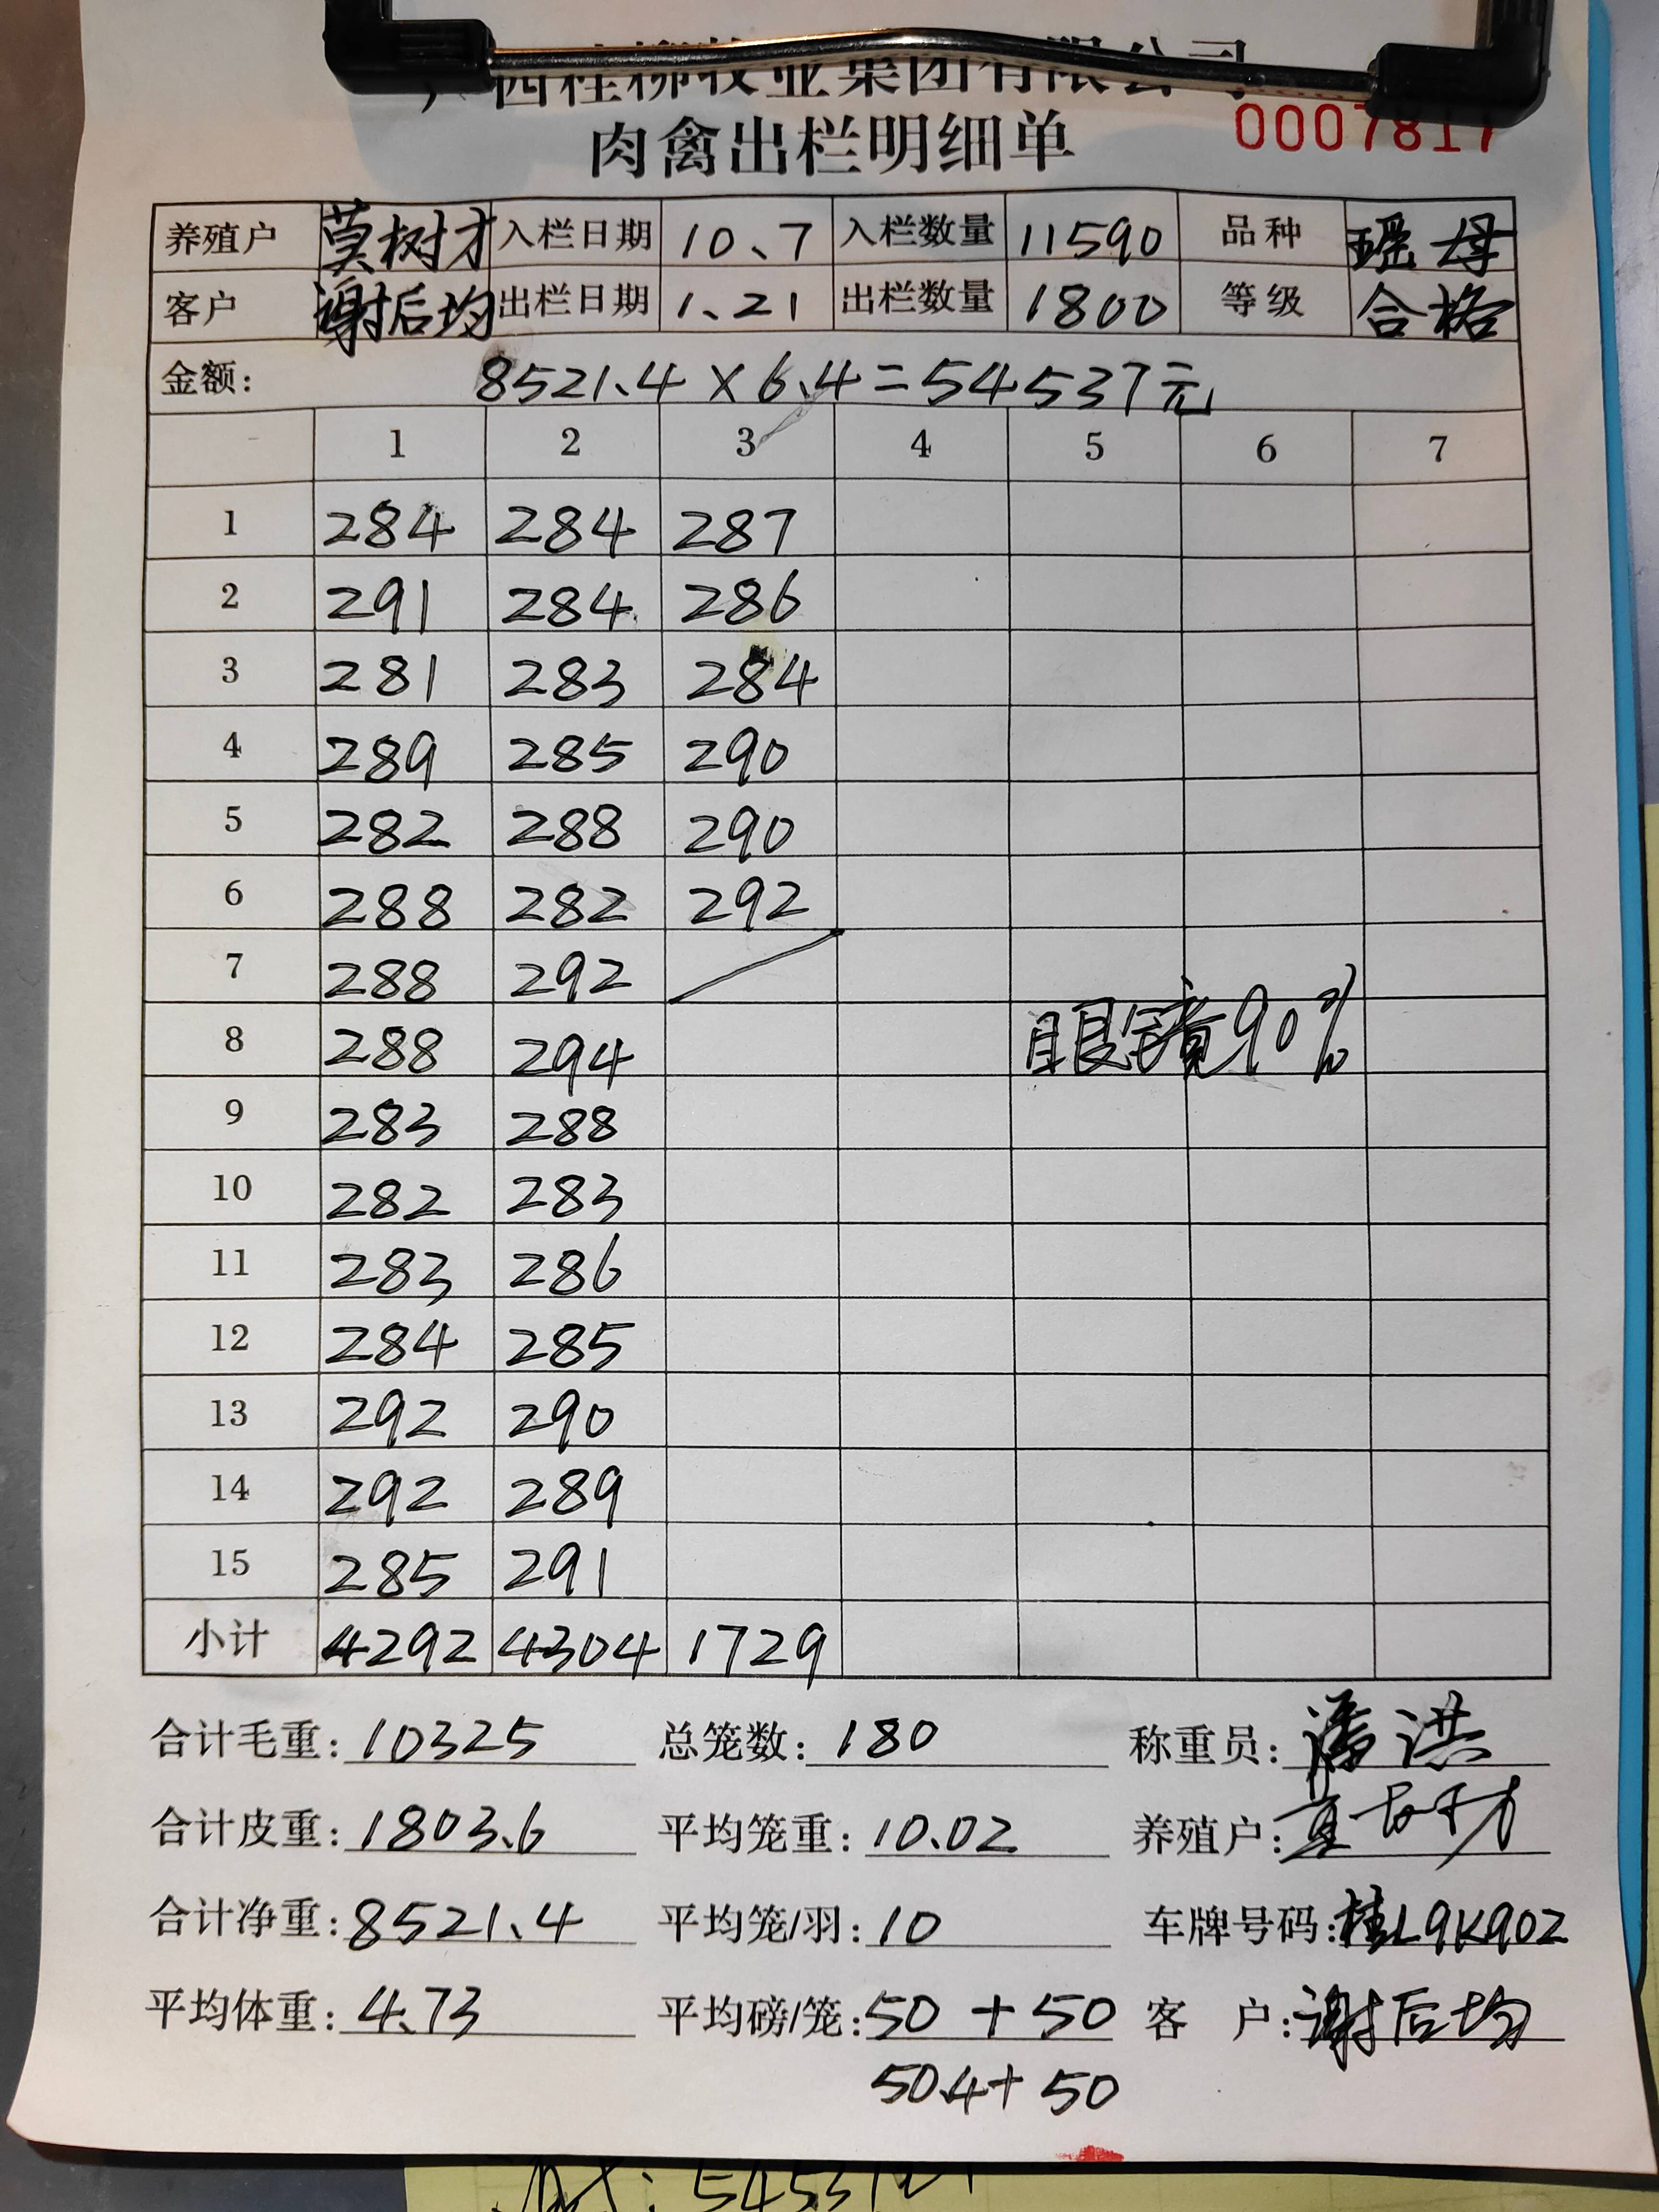 西桂柳牧业集团有限公司
肉禽出栏明细单
0007817
养殖户 莫树才 入栏日期 10、7 入栏数量 11590 品种 瑶母
客户 谢后均 出栏日期 1、21 出栏数量 1800 等级 合格
金额: 8521.4 × 6.4 = 54537元
1 2 3 4 5 6 7
1 284 284 287
2 291 284 286
3 281 283 284
4 289 285 290
5 282 288 290
6 288 282 292
7 288 292
8 288 294 眼镜90%
9 283 288
10 282 283
11 283 286
12 284 285
13 292 290
14 292 289
15 285 291
小计 4292 4304 1729
合计毛重: 10325 总笼数: 180 称重员: 潘洪
合计皮重: 1803.6 平均笼重: 10.02 养殖户:
合计净重: 8521.4 平均笼/羽: 10 车牌号码: 桂L9K902
平均体重: 4.73 平均磅/笼: 50 + 50 客 户: 谢后均
50.4 + 50